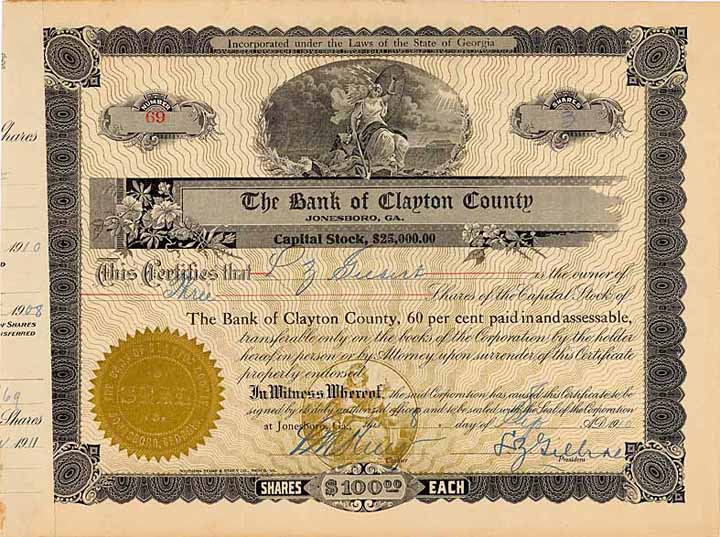 Incorporated under the Laws of the State of Georgia
NUMBER
69
SHARES
3
The Bank of Clayton County
JONESBORO, GA.
Capital Stock, $25,000.00
This Certifies that L Z is the owner of
Three Shares of the Capital Stock of
The Bank of Clayton County, 60 per cent paid in and assessable,
transferable only on the books of the Corporation by the holder
hereof in person or by Attorney upon surrender of this Certificate
properly endorsed.
In Witness Whereof, the said Corporation has caused this Certificate to be
signed by its duly authorized officers and to be sealed with the Seal of the Corporation
at Jonesboro, Ga., this 8 day of A.D. 1910
Cashier
President
SHARES $100.00 EACH
THE BANK OF CLAYTON COUNTY
SEAL
JONESBORO, GEORGIA
Shares
1910
1908
OF SHARES
69
Shares
1911